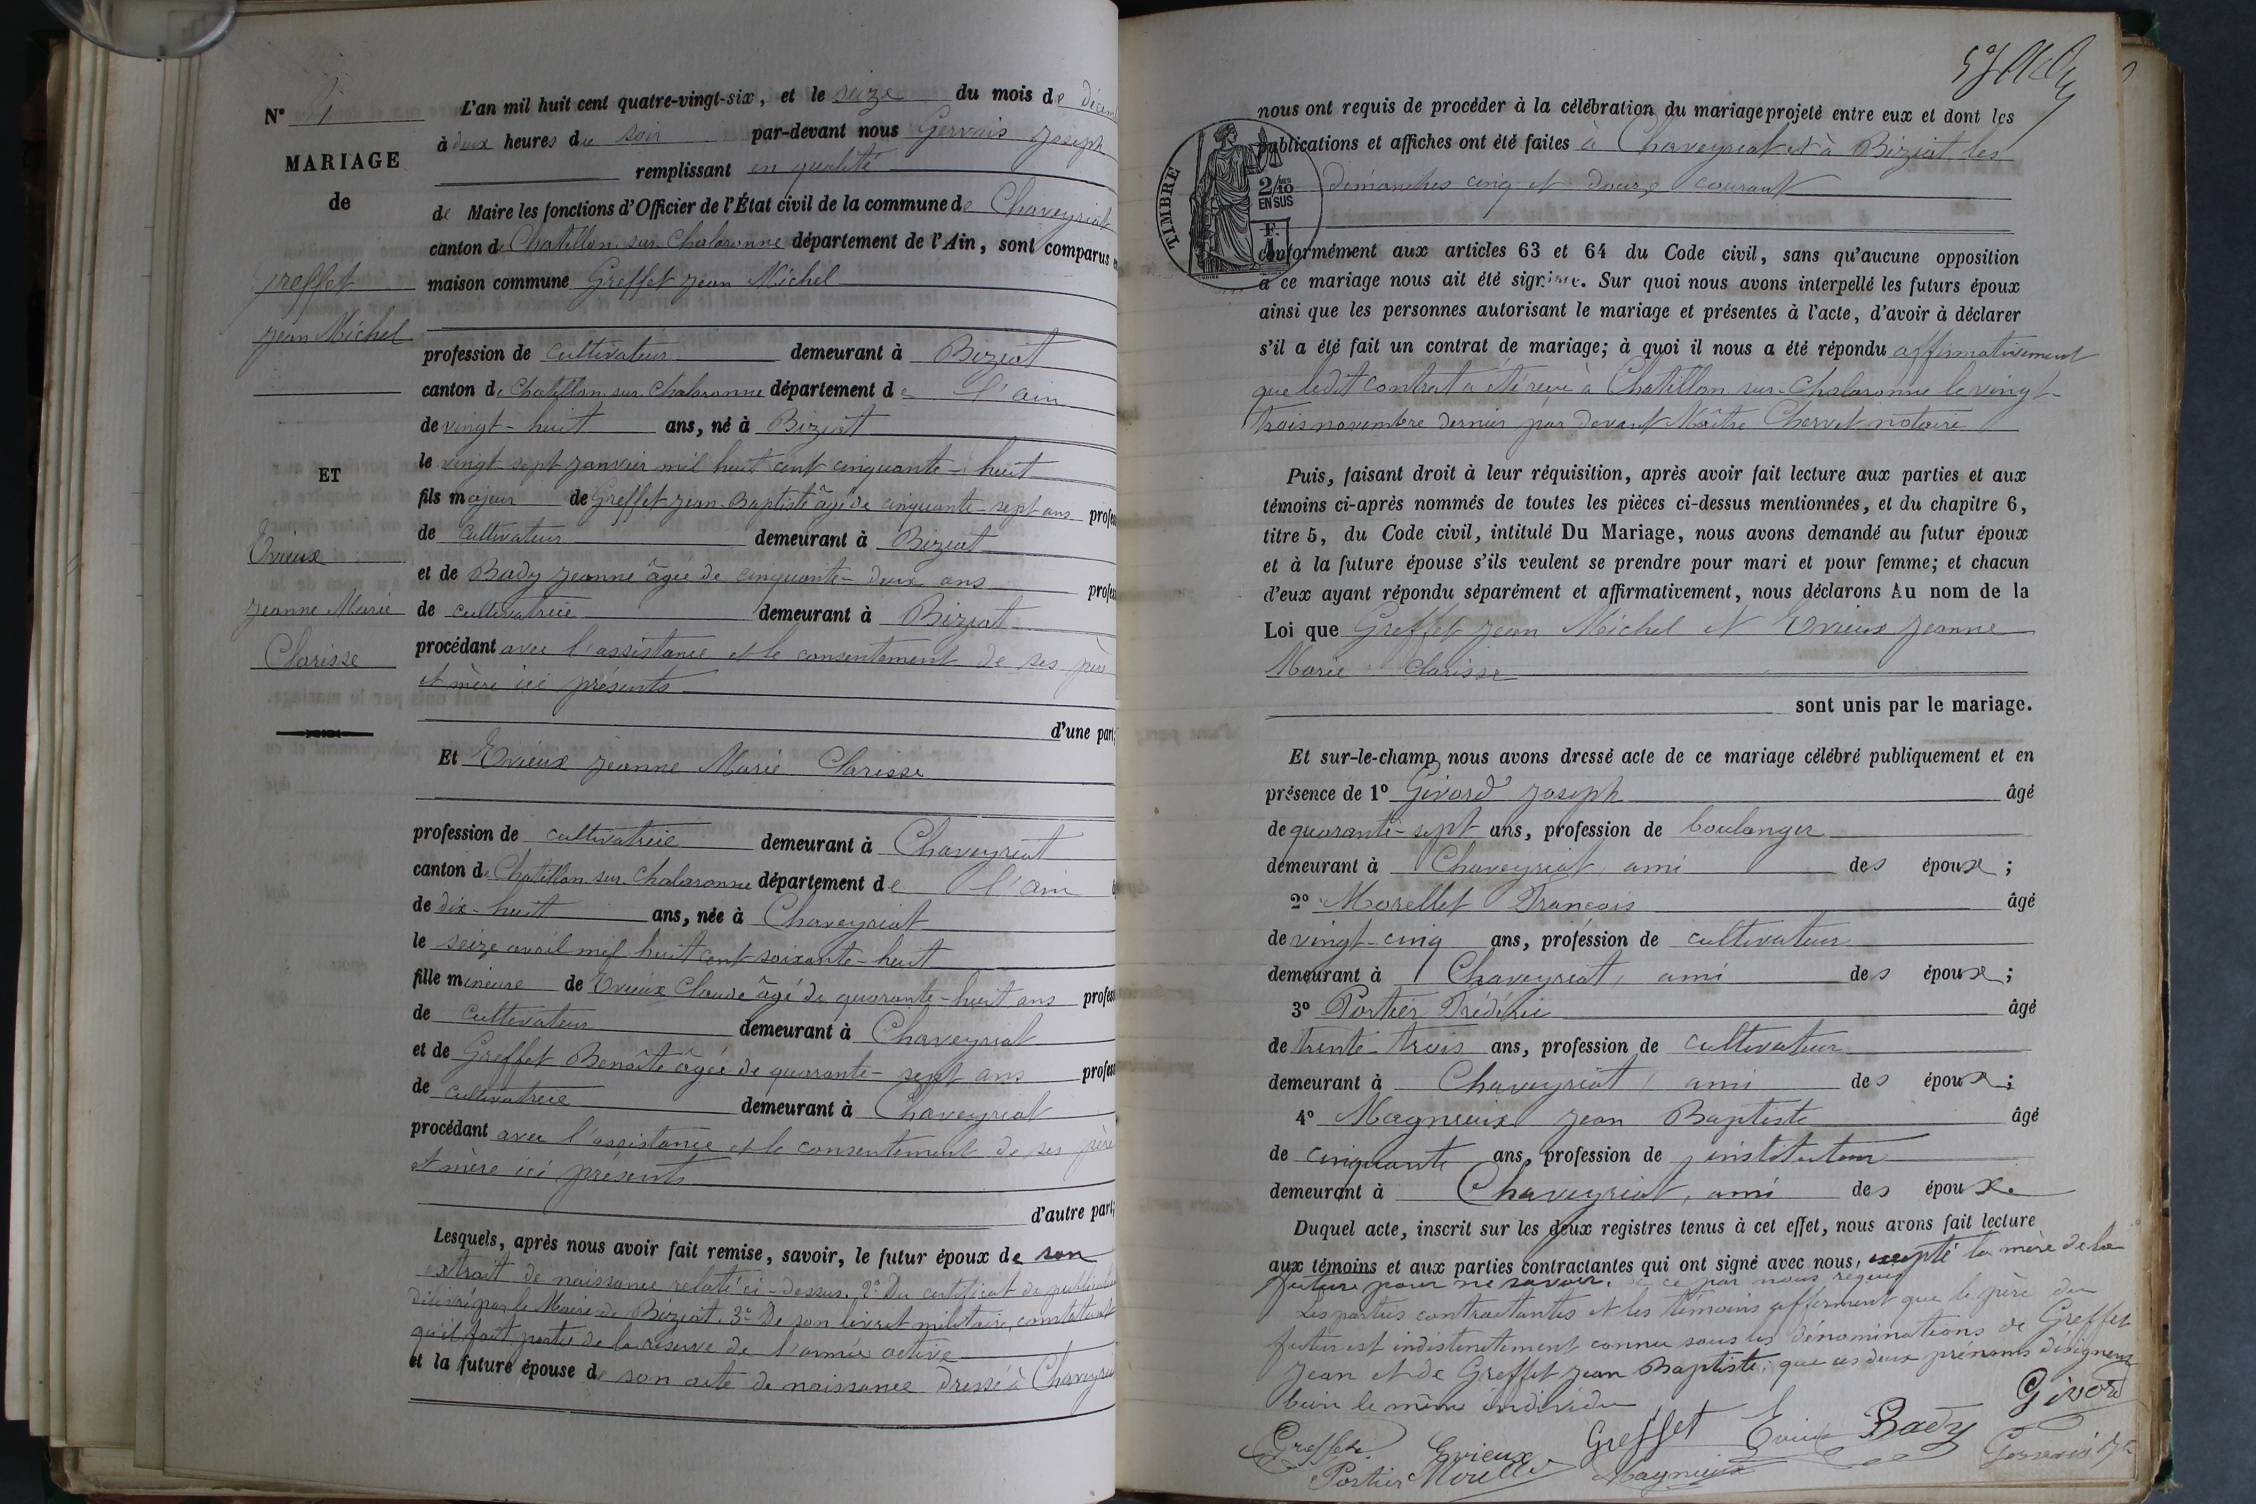 N°
MARIAGE
de
Greffet
Jean Michel
ET
Evieux
Jeanne Marie
Clarisse
L'an mil huit cent quatre-vingt-six, et le seize du mois de décem
à deux heures du soir par-devant nous Gervais Joseph
remplissant en qualité
de Maire les fonctions d'Officier de l'État civil de la commune de Chaveyriat
canton de Chatillon sur Chalaronne département de l'Ain, sont comparus en
maison commune Greffet Jean Michel
profession de cultivateur demeurant à Biziat
canton de Chatillon sur Chalaronne département de l'ain
de vingt-huit ans, né à Biziat
le vingt-sept janvier mil huit cent cinquante-huit
fils majeur de Greffet Jean-Baptiste âgé de cinquante-sept ans profes
de cultivateur demeurant à Biziat
et de Bady Jeanne âgée de cinquante-deux ans profes
de cultivatrice demeurant à Biziat
procédant avec l'assistance et le consentement de ses père
et mère ici présents
d'une part;
Et Evieux Jeanne Marie Clarisse
profession de cultivatrice demeurant à Chaveyriat
canton de Chatillon sur Chalaronne département de l'ain
de dix-huit ans, née à Chaveyriat
le seize avril mil huit cent soixante-huit
fille mineure de Evieux Claude âgé de quarante-huit ans profes
de cultivateur demeurant à Chaveyriat
et de Greffet Benoîte âgée de quarante-sept ans profes
de cultivatrice demeurant à Chaveyriat
procédant avec l'assistance et le consentement de ses père
et mère ici présents
d'autre part;
Lesquels, après nous avoir fait remise, savoir, le futur époux de son
extrait de naissance relaté ci-dessus. 2° Du certificat de publication
délivré par le Maire de Biziat. 3° De son livret militaire, constatant
qu'il fait partie de la réserve de l'armée active
et la future épouse de son acte de naissance dressé à Chaveyriat
nous ont requis de procéder à la célébration du mariage projeté entre eux et dont les
publications et affiches ont été faites à Chaveyriat et à Biziat les
dimanches cinq et douze courant
TIMBRE
2/10 EN SUS
F.
conformément aux articles 63 et 64 du Code civil, sans qu'aucune opposition
à ce mariage nous ait été signifiée. Sur quoi nous avons interpellé les futurs époux
ainsi que les personnes autorisant le mariage et présentes à l'acte, d'avoir à déclarer
s'il a été fait un contrat de mariage; à quoi il nous a été répondu affirmativement
que ledit contrat a été reçu à Chatillon sur Chalaronne le vingt-
trois novembre dernier par devant Maître Chervet notaire
Puis, faisant droit à leur réquisition, après avoir fait lecture aux parties et aux
témoins ci-après nommés de toutes les pièces ci-dessus mentionnées, et du chapitre 6,
titre 5, du Code civil, intitulé Du Mariage, nous avons demandé au futur époux
et à la future épouse s'ils veulent se prendre pour mari et pour femme; et chacun
d'eux ayant répondu séparément et affirmativement, nous déclarons Au nom de la
Loi que Greffet Jean Michel et Evieux Jeanne
Marie Clarisse
sont unis par le mariage.
Et sur-le-champ nous avons dressé acte de ce mariage célébré publiquement et en
présence de 1° Givord Joseph âgé
de quarante-sept ans, profession de boulanger
demeurant à Chaveyriat, ami des époux;
2° Morellet François âgé
de vingt-cinq ans, profession de cultivateur
demeurant à Chaveyriat, ami des époux;
3° Portier Frédéric âgé
de trente-trois ans, profession de cultivateur
demeurant à Chaveyriat, ami des époux;
4° Magnieux Jean Baptiste âgé
de cinquante ans, profession de instituteur
demeurant à Chaveyriat, ami des époux.
Duquel acte, inscrit sur les deux registres tenus à cet effet, nous avons fait lecture
aux témoins et aux parties contractantes qui ont signé avec nous, excepté la mère de la
future pour ne savoir, de ce par nous requis
Les parties contractantes et les témoins afferment que le père du
futur est indistinctement connu sous les dénominations de Greffet
Jean et de Greffet Jean Baptiste; que ces deux prénoms désignent
bien le même individu
Greffet Evieux Greffet Evieux Bady Givord
Portier Morellet Magnieux Gervais